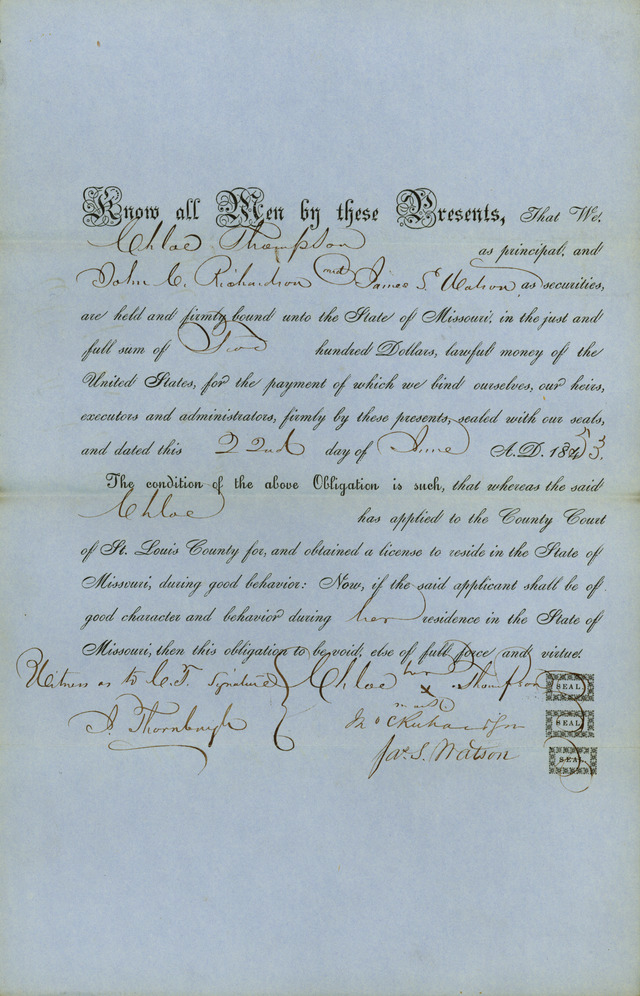 Know all Men by these Presents, That We,
Chloe Thompson as principal, and
John C. Richardson and James S. Watson, as securities,
are held and firmly bound unto the State of Missouri, in the just and
full sum of Two hundred Dollars, lawful money of the
United States, for the payment of which we bind ourselves, our heirs,
executors and administrators, firmly by these presents, sealed with our seals,
and dated this 22nd day of June A.D. 1853.
The condition of the above Obligation is such, that whereas the said
Chloe has applied to the County Court
of St. Louis County for, and obtained a license to reside in the State of
Missouri, during good behavior: Now, if the said applicant shall be of
good character and behavior during her residence in the State of
Missouri, then this obligation to be void, else of full force and virtue.
Witness as to C.T. Signature Chloe her x mark Thompson SEAL
S. Thornburgh Jno C Richardson SEAL
Jas. S. Watson SEAL